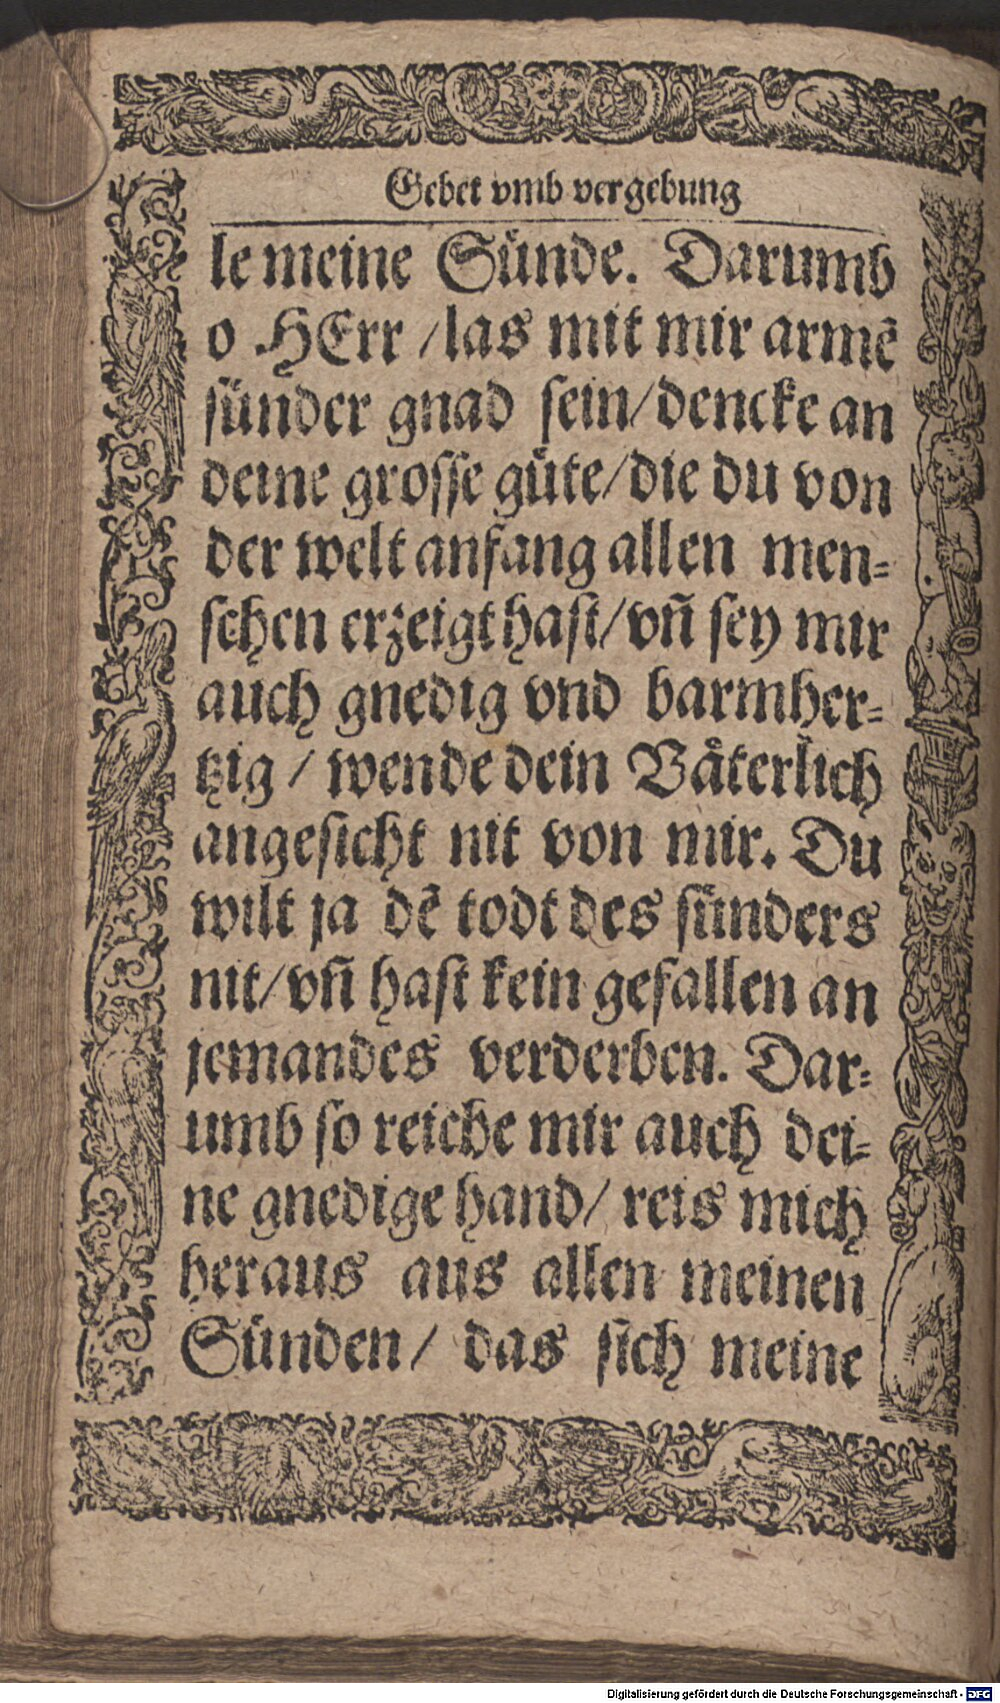 Gebet vmb vergebung
le meine Suͤnde. Darumb
o HErr /las mit mir armẽ
suͤnder gnad sein/dencke an
deine grosse guͤte/die du von
der welt anfang allen men⸗
schen erzeigt hast/vñ sey mir
auch gnedig vnd barmher⸗
tzig / wende dein Vaͤterlich
angesicht nit von mir. Du
wilt ja dẽ todt des suͤnders
nit/vñ hast kein gefallen an
jemandes verderben. Dar⸗
umb so reiche mir auch dei⸗
ne gnedige hand/ reis mich
heraus aus allen meinen
Suͤnden/ das sich meine
Digitalisierung gefördert durch die Deutsche Forschungsgemeinschaft - DFG